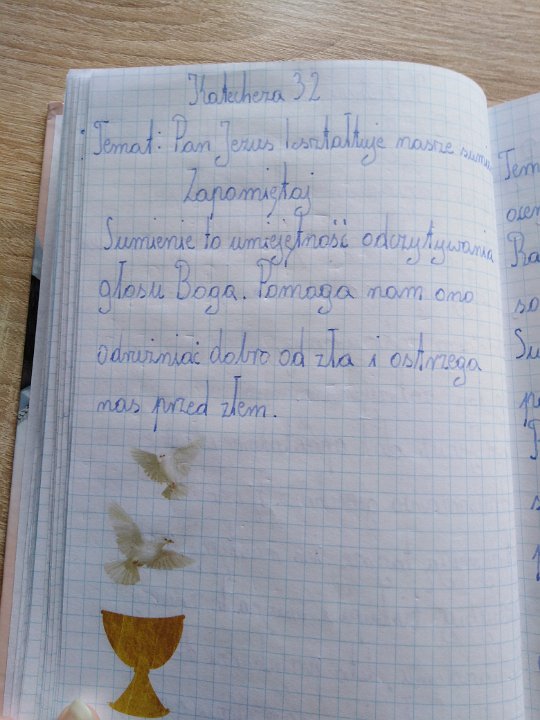 Katecheza 32
Temat: Pan Jezus kształtuje nasze sumie
Zapamiętaj
Sumienie to umiejętność odczytywania
głosu Boga. Pomaga nam ono
odróżniać dobro od zła i ostrzega
nas przed złem.
Tem
ocen
Ra
so
Su